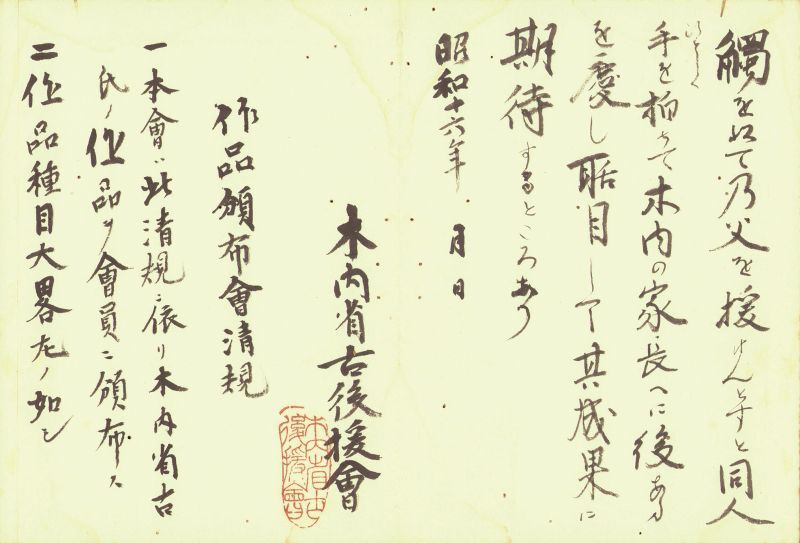 觸を以て乃父を援けんとすと同人
手を拍つて木内の家長へに後ある
を慶し聒目して其成果に
期待するところあり
昭和十六年　月　日
木内省古後援會
木内省古後援會
作品頒布會清規
一本會ハ此清規ニ依リ木内省古
氏ノ作品ヲ會員ニ頒布ス
二作品種目大畧左ノ如シ